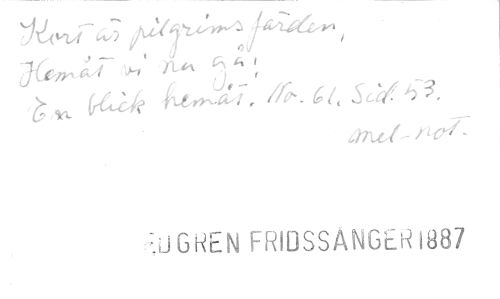 Kort är pilgrimsfärden,
Hemåt vi nu gå!
En blick hemåt. No. 61. Sid. 53.
mel-not.
EDGREN FRIDSSÅNGER 1887